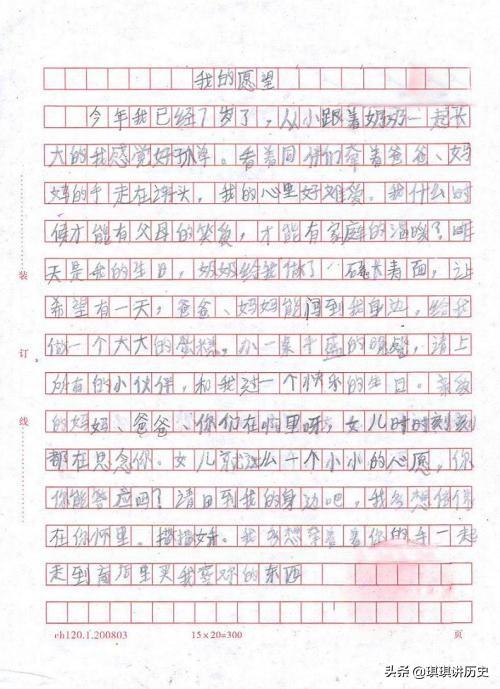 我的愿望
今年我已经7岁了，从小跟着奶奶一起长
大的我感觉好孤单。看着同伴们牵着爸爸、妈
妈的手走在街头，我的心里好难受。我什么时
候才能有父母的笑容，才能有家庭的温暖？昨
天是我的生日，奶奶给我做了一碗长寿面，让
希望有一天，爸爸、妈妈能回到我身边，给我
做一个大大的蛋糕，办一桌丰盛的晚餐，请上
所有的小伙伴，和我过一个快乐的生日。亲爱
的妈妈、爸爸、你们在哪里呀，女儿时时刻刻
都在思念你。女儿就这么一个小小的心愿，你
你能答应吗？请回到我的身边吧，我多想依偎
在你怀里。我多想牵着着你的手一起
走到商场里买我喜欢的东西
装
订
线
ch120.1.200803 15×20=300 页
头条 @琪琪讲历史